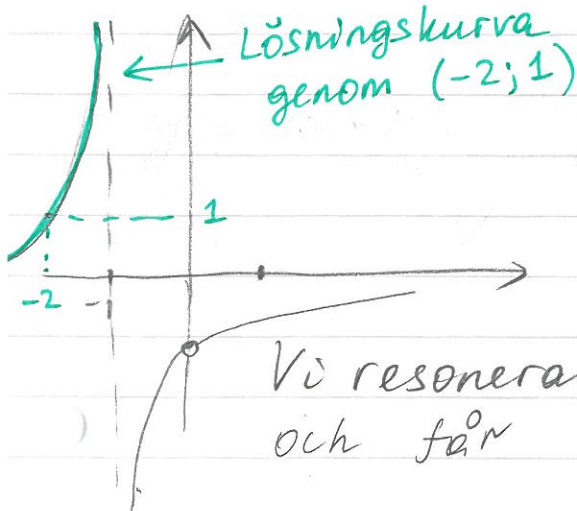 Lösningskurva
genom (-2; 1)
1
-2
Vi resonera
och får